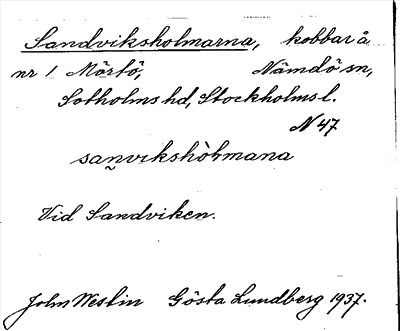 Sandviksholmarna, kobbar å
nr 1 Mörtö, Nämdö sn,
Sotholms hd, Stockholms l.
N 47
san̬vikshòɫmana
Vid Sandviken.
John Westin Gösta Lundberg 1937.